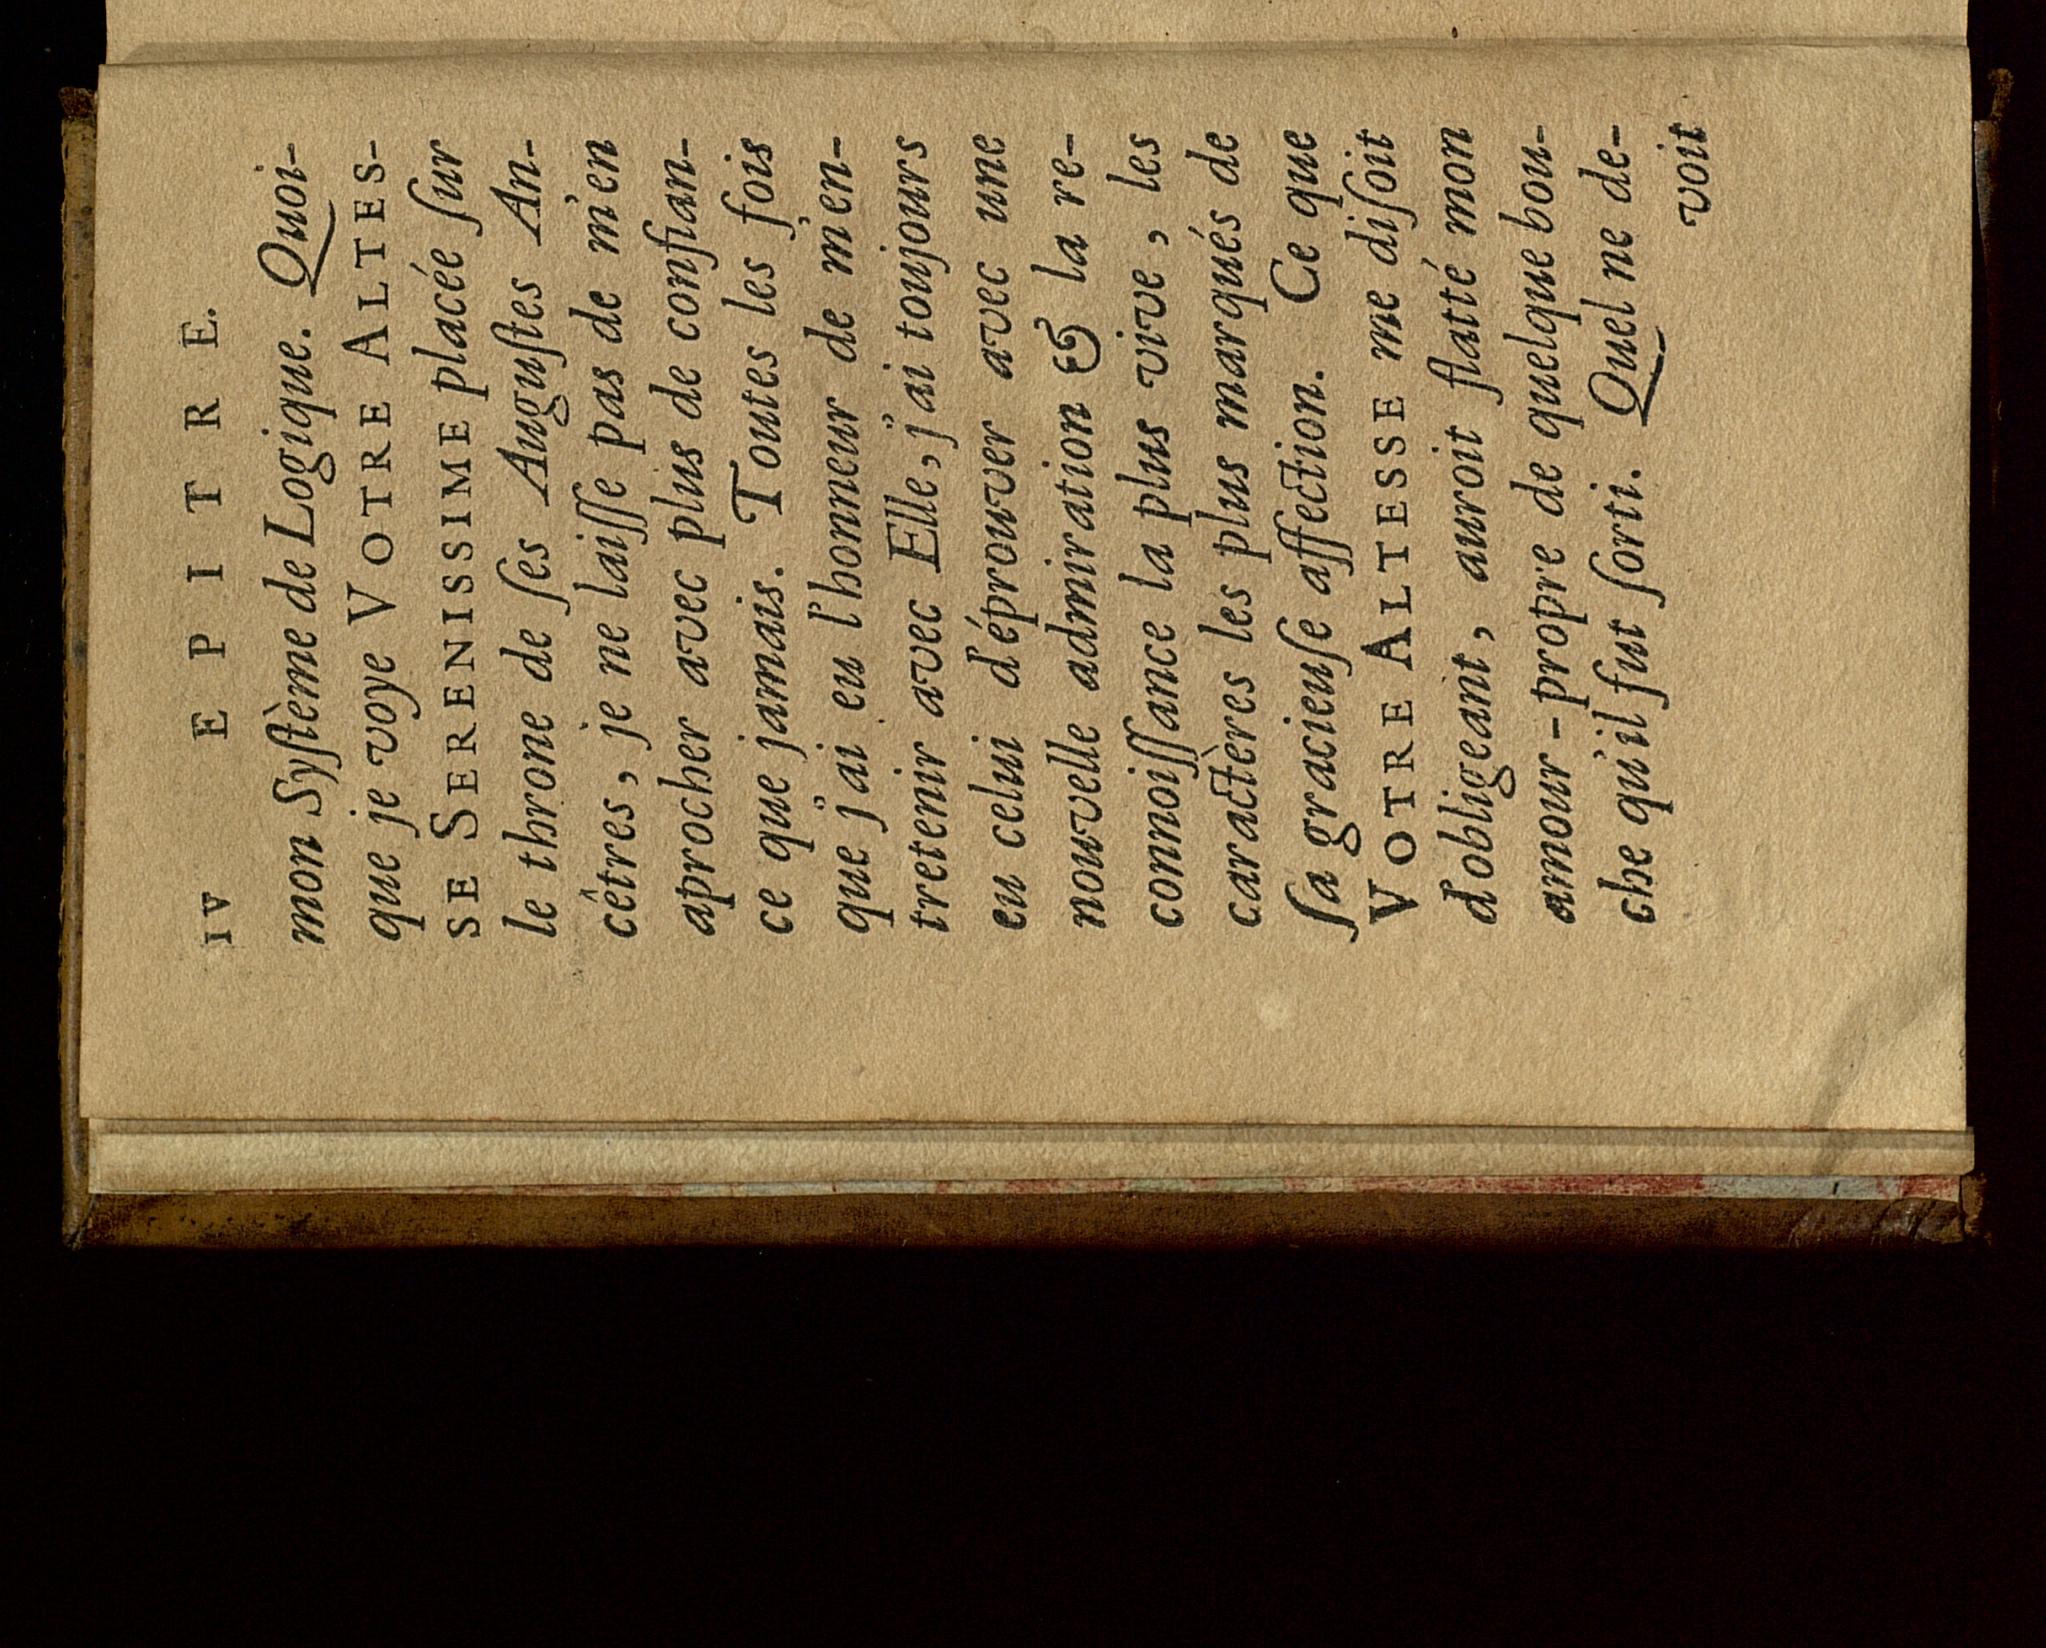 IV EPITRE.
mon Syſtème de Logique. Quoi-
que je voye VOTRE ALTES-
SE SERENISSIME placée ſur
le throne de ſes Auguſtes An-
cêtres, je ne laiſſe pas de m'en
aprocher avec plus de confian-
ce que jamais. Toutes les fois
que j'ai eu l'honneur de m'en-
tretenir avec Elle, j'ai toujours
eu celui d'éprouver avec une
nouvelle admiration & la re-
connoiſſance la plus vive, les
caractères les plus marqués de
ſa gracieuſe affection. Ce que
VOTRE ALTESSE me diſoit
d'obligeant, auroit flatté mon
amour-propre de quelque bou-
che qu'il fut ſorti. Quel ne de-
voit